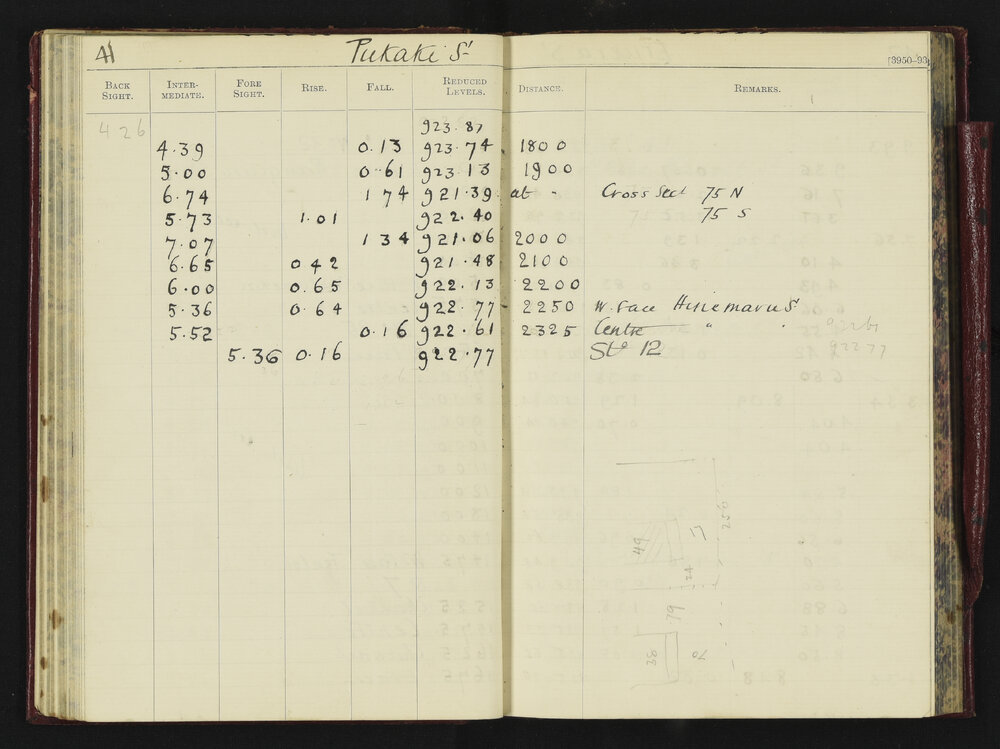 41 Pukaki St
[3950-93
BACK SIGHT. INTER- MEDIATE. FORE SIGHT. RISE. FALL. REDUCED LEVELS. DISTANCE. REMARKS.
4 26 923.87
4.39 0.13 923.74 1800
5.00 0.61 923.13 1900
6.74 1 74 921.39 at - Cross Sect 75 N
5.73 1.01 922.40 75 S
7.07 1 34 921.06 2000
6.65 0 42 921.48 2100
6.00 0.65 922.13 2200
5.36 0.64 922.77 2250 W. face Hinemaru St
5.52 0.16 922.61 2325 Centre " '
5.36 0.16 922.77 Stn 12
922 61
922 77
250
49
17
24
79
28